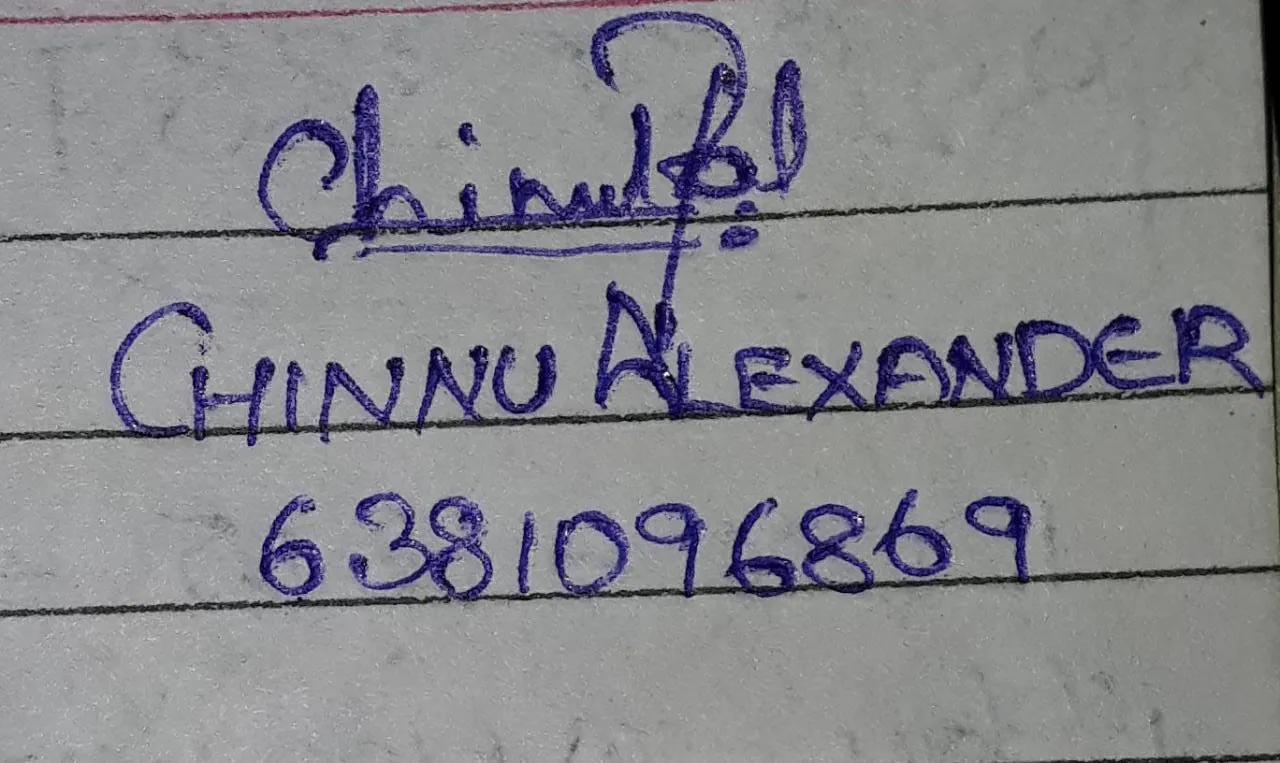 CHINNU ALEXANDER
6381096869